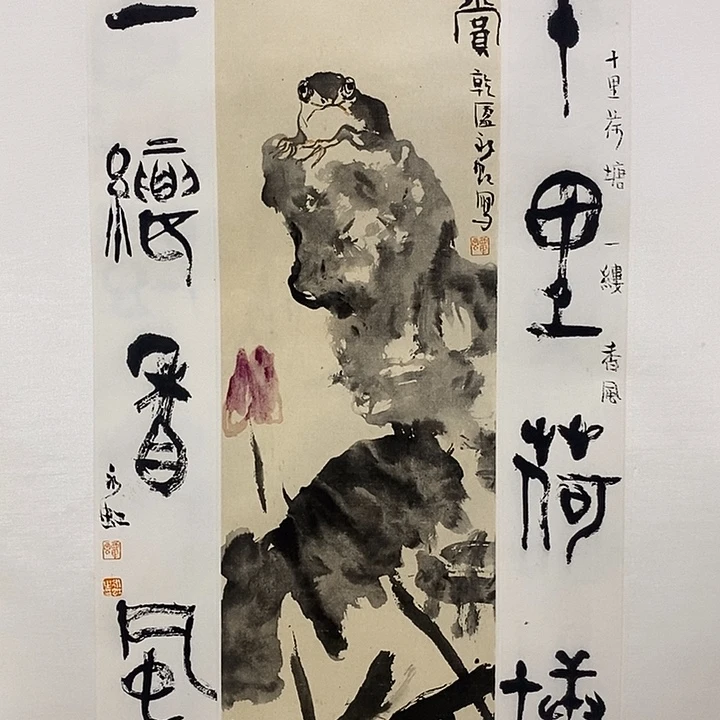 十里荷塘 一縷香風
十里荷塘
賞
乾 永虹寫
一縷香風
永虹